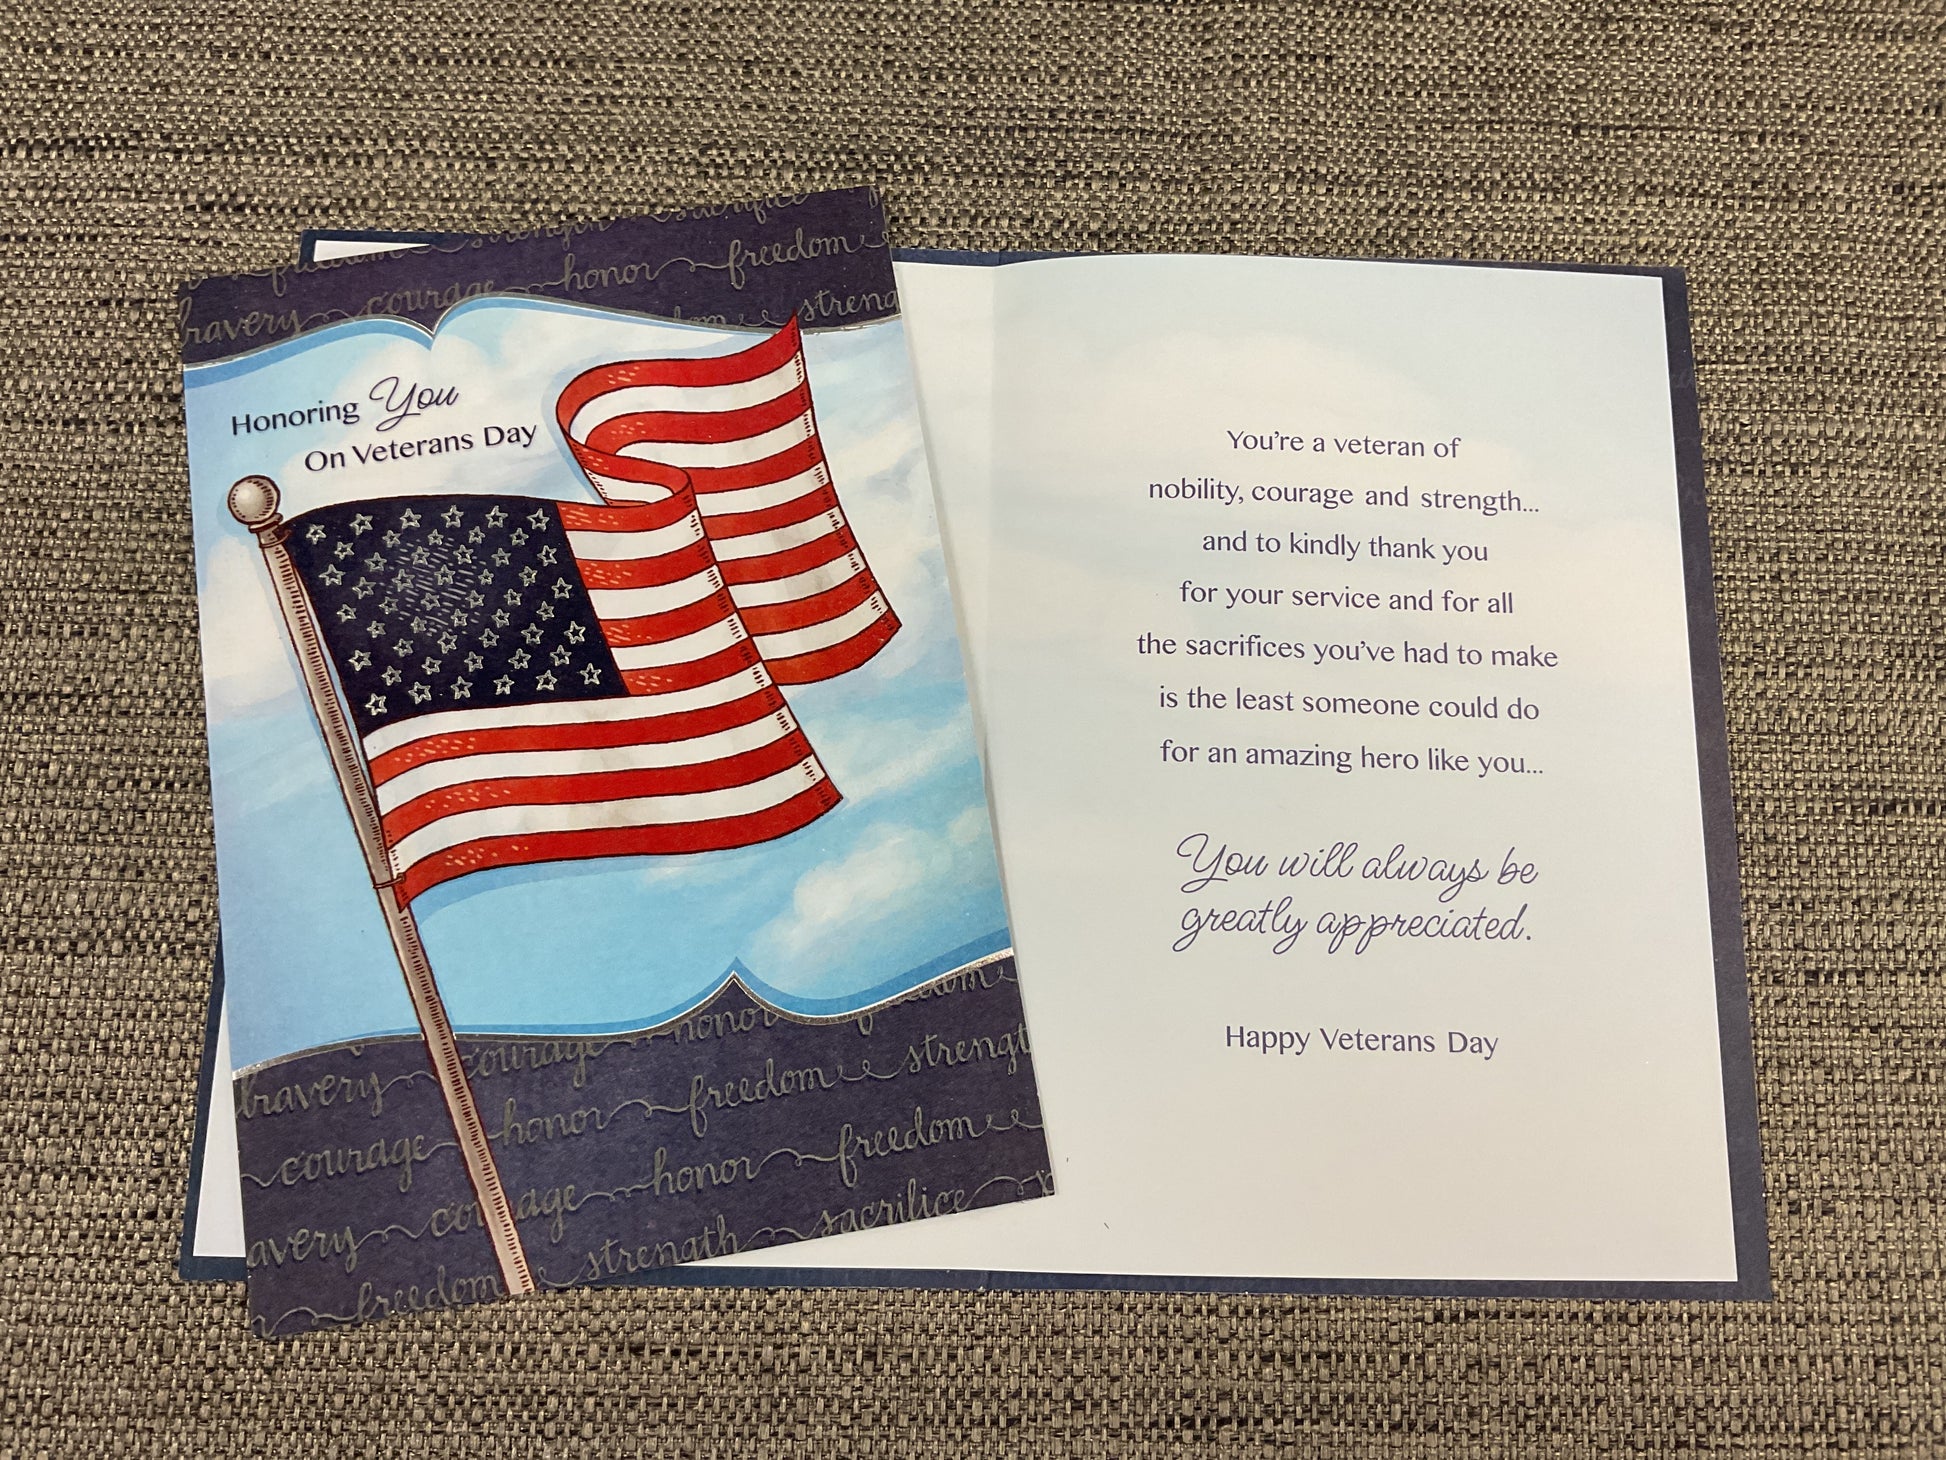 strength sacrifice
freedom
bravery courage honor freedom
streng
Honoring You
On Veterans Day
bravery courage honor freedom
honor freedom strengt
courage honor freedom
avery courage honor freedom
strength sacrifice
freedom
You're a veteran of
nobility, courage and strength...
and to kindly thank you
for your service and for all
the sacrifices you've had to make
is the least someone could do
for an amazing hero like you...
You will always be
greatly appreciated.
Happy Veterans Day